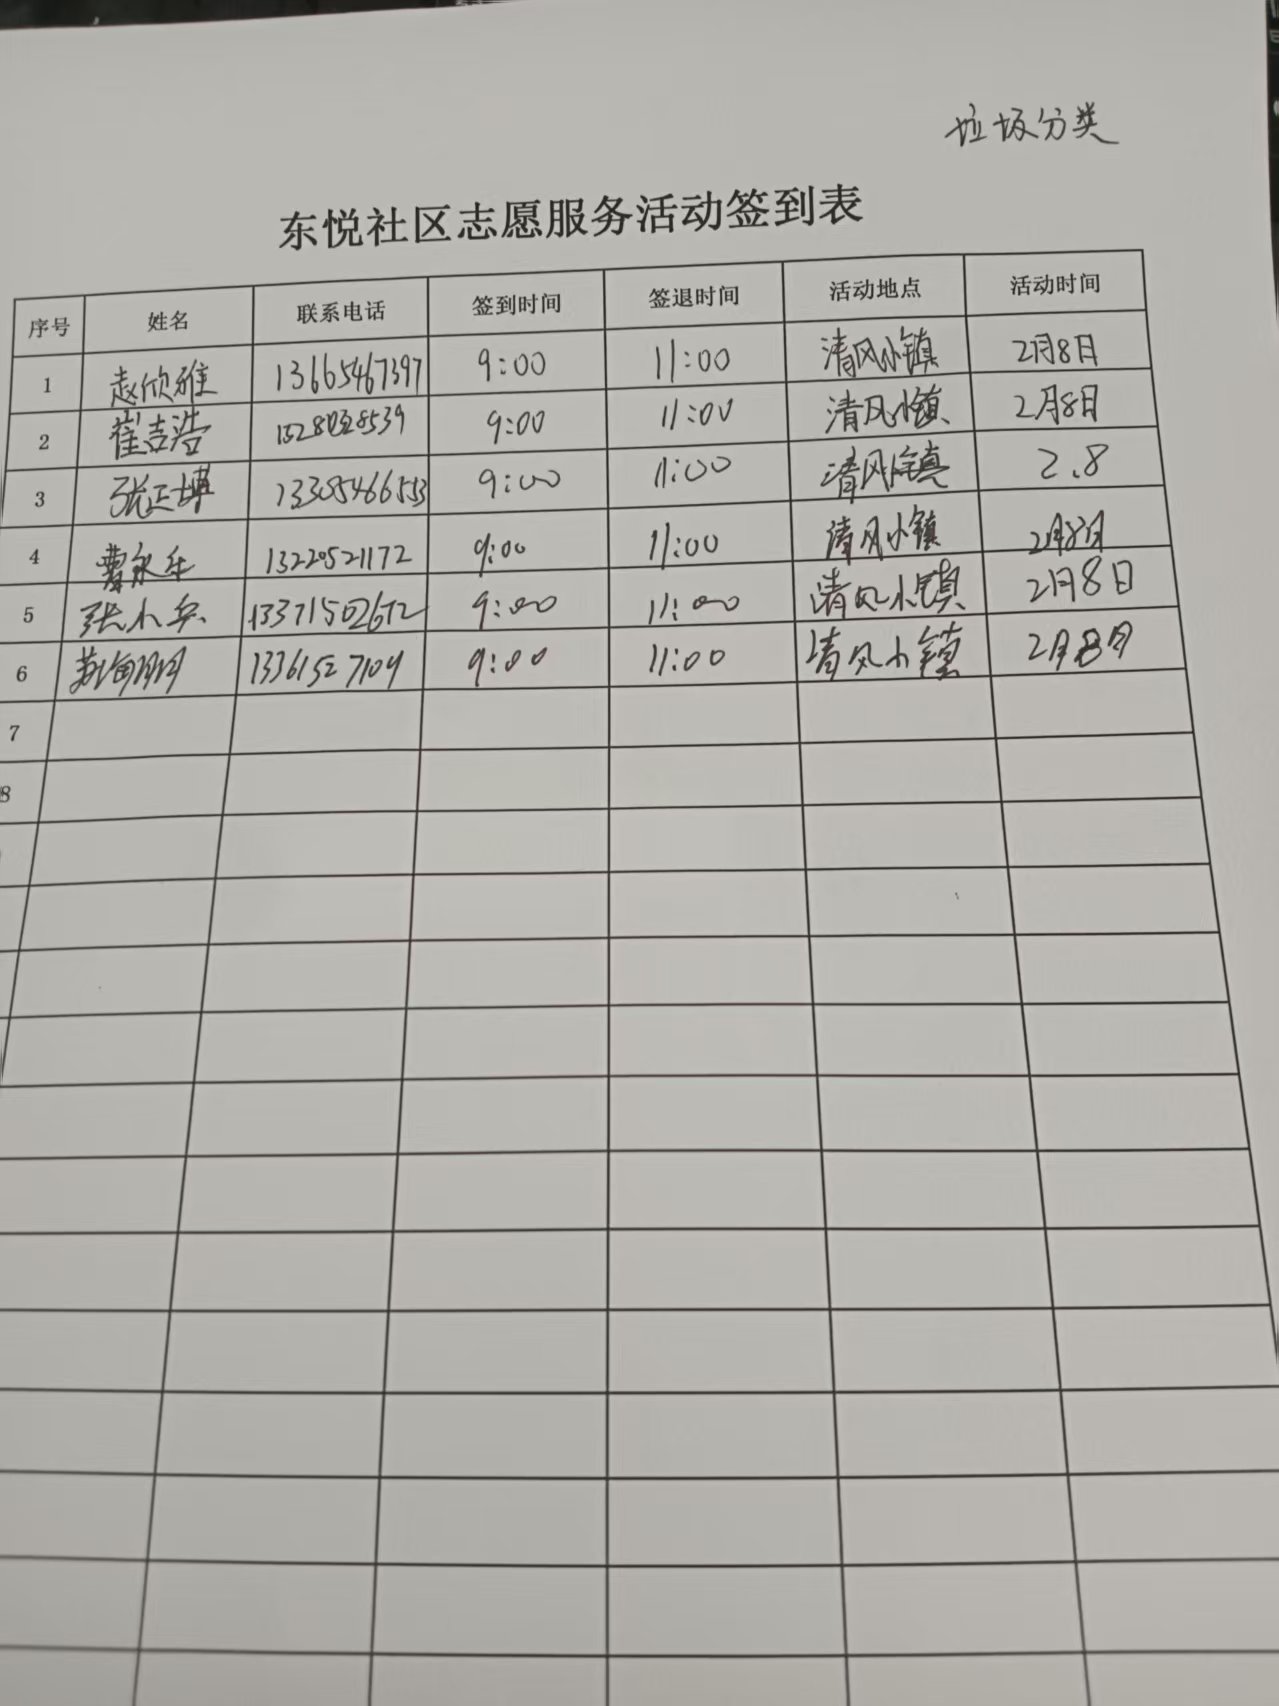 垃圾分类
东悦社区志愿服务活动签到表
序号 姓名 联系电话 签到时间 签退时间 活动地点 活动时间
1 赵欣雅 13665467397 9:00 11:00 清风小镇 2月8日
2 崔吉浩 9:00 11:00 清风小镇 2月8日
3 张正博 13305466553 9:00 11:00 清风小镇 2.8
4 曹永乐 13220521172 9:00 11:00 清风小镇 2月8日
5 张小兵 13371502672 9:00 11:00 清风小镇 2月8日
6 13361527109 9:00 11:00 清风小镇 2月8日
7
8